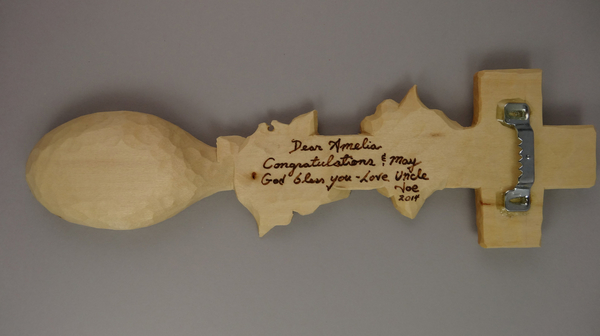 Dear Amelia
Congratulations & May
God bless you - Love Uncle
Joe
2014